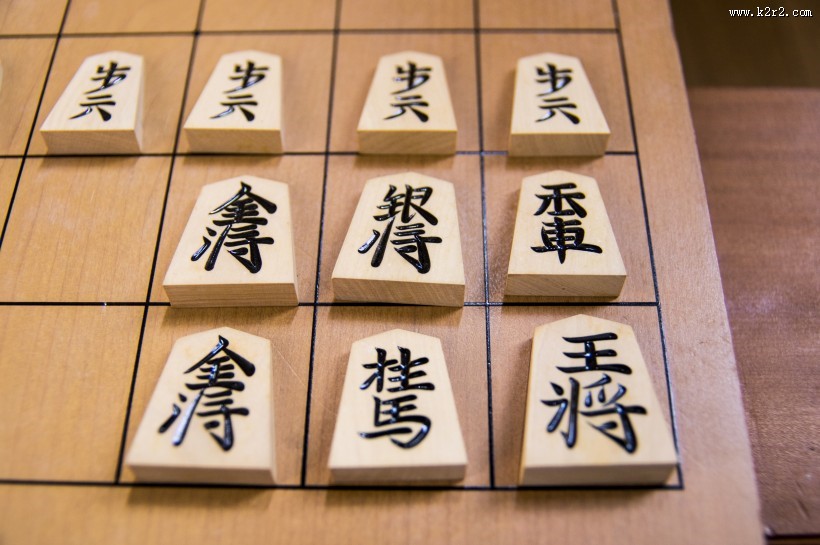 www.k2r2.com
歩兵
歩兵
歩兵
歩兵
金将
銀将
香車
金将
桂馬
王将